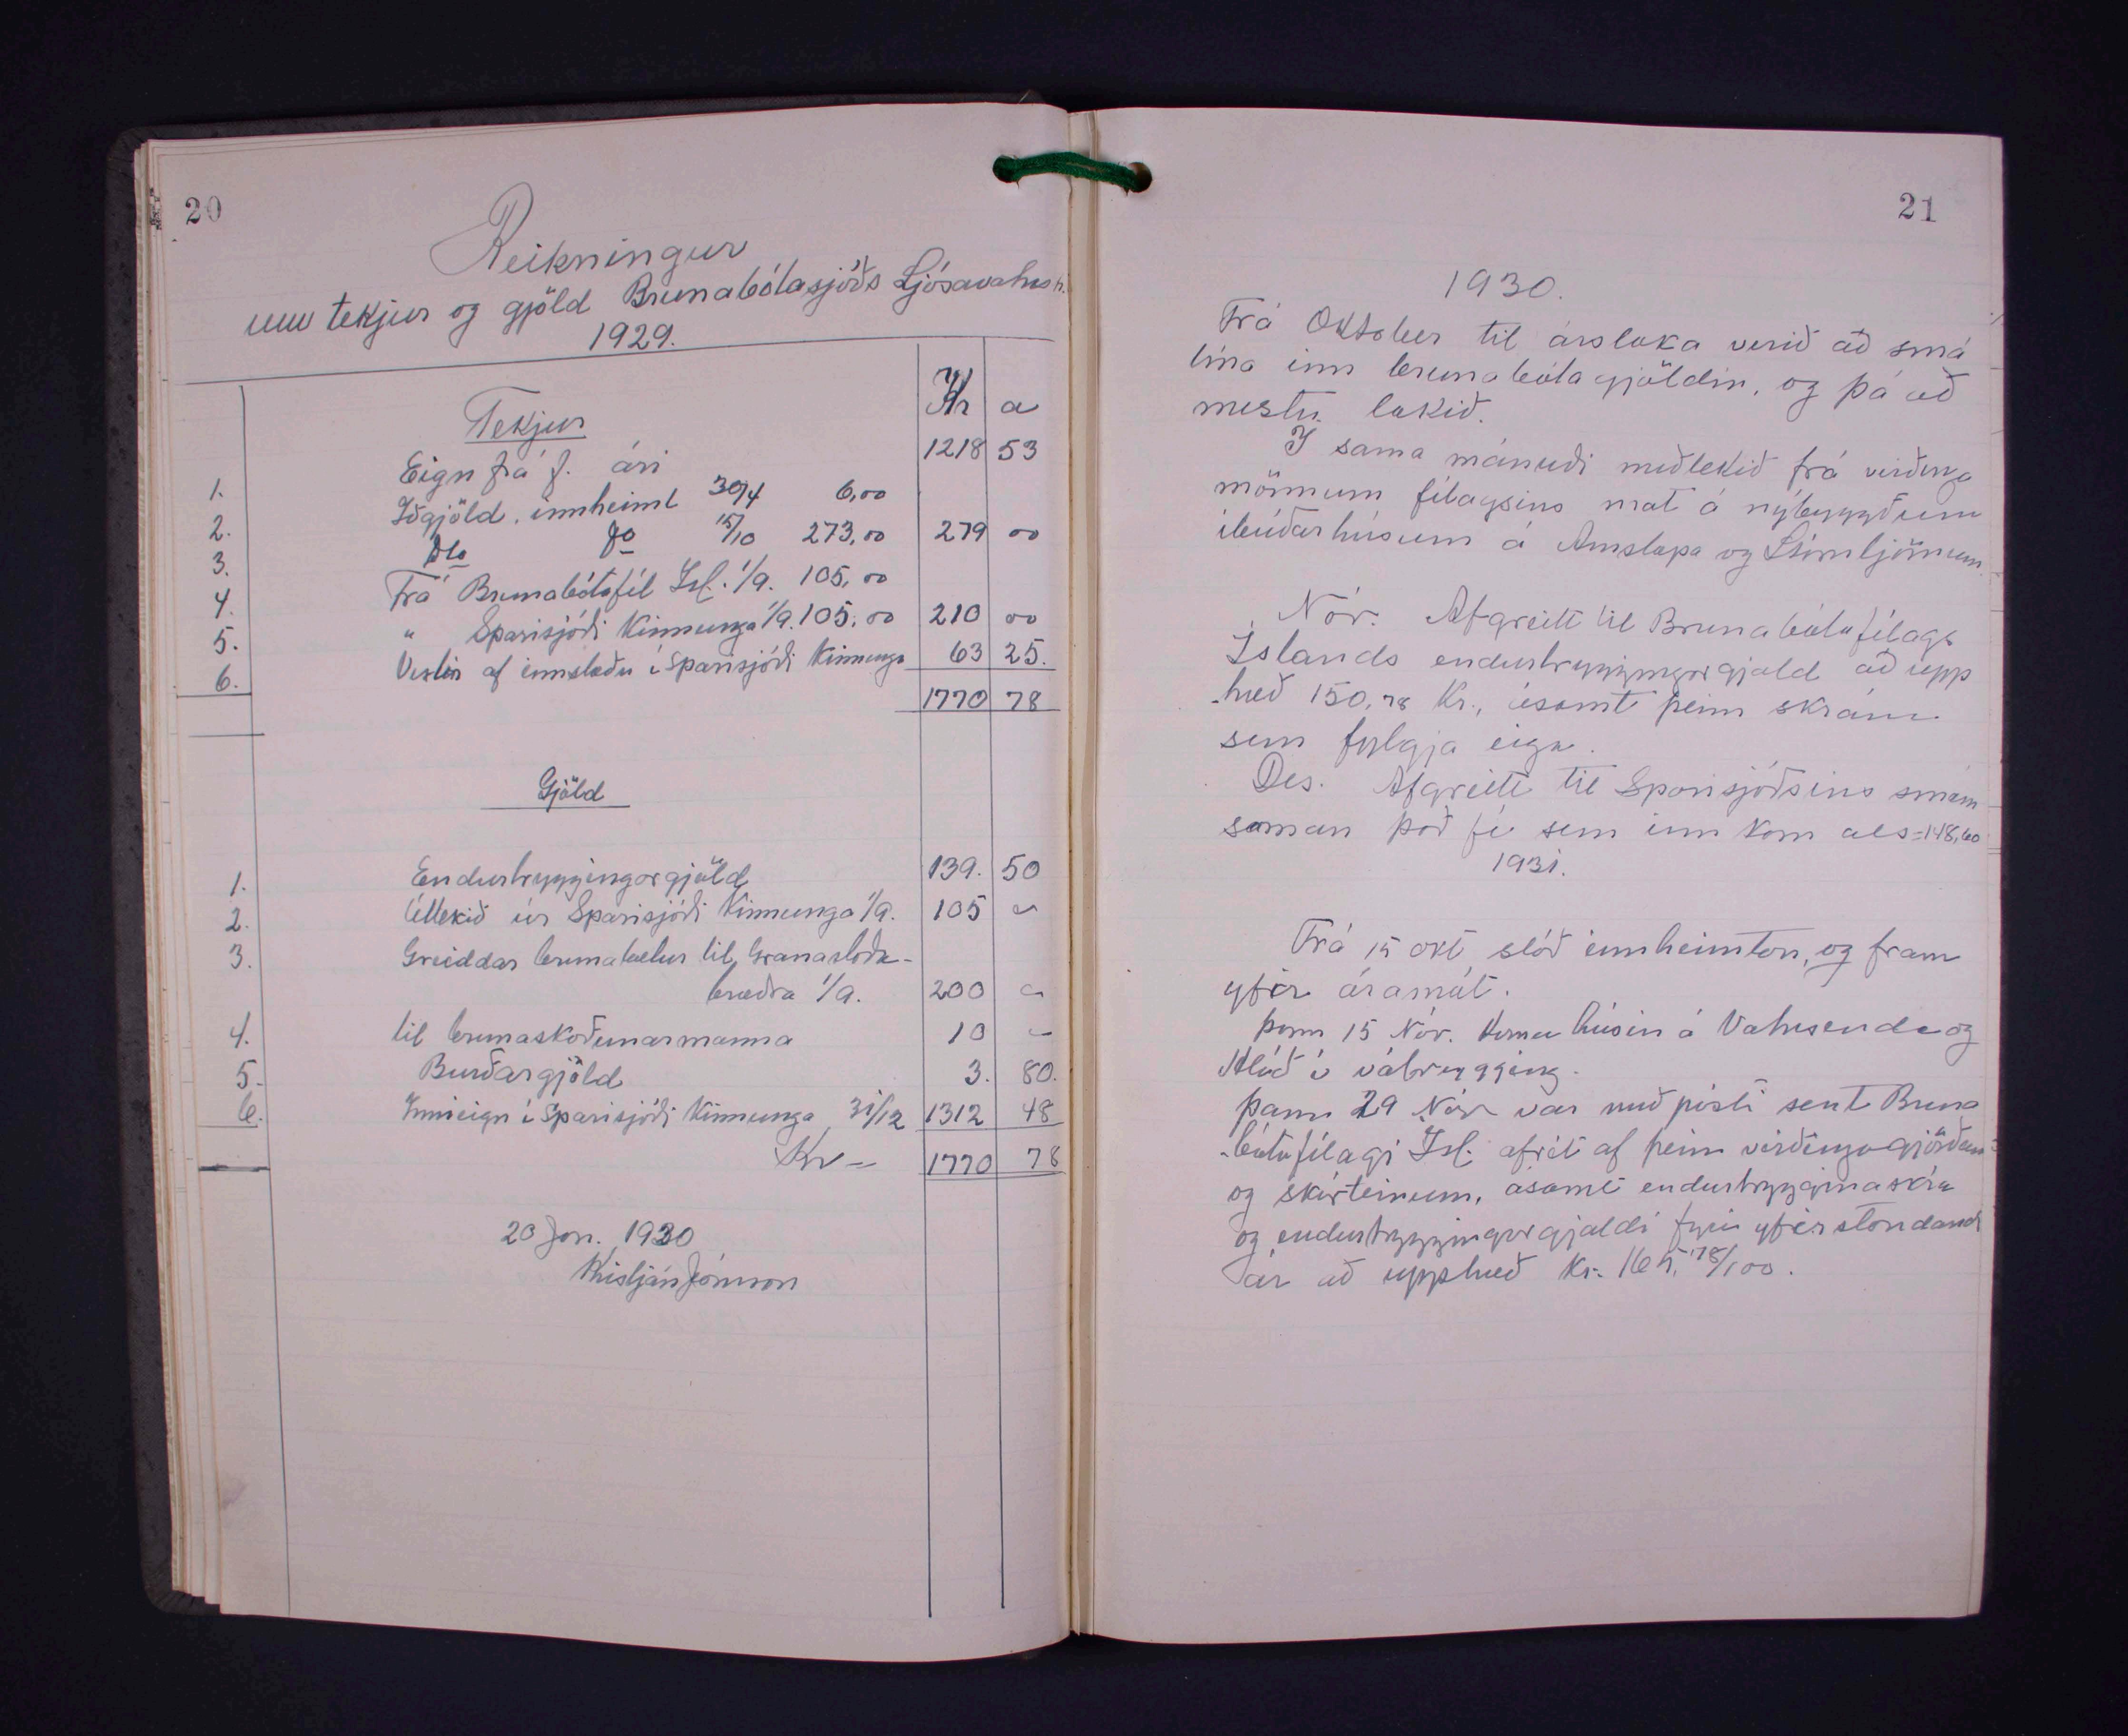 20
Reikningur
um tekjur og gjöld Brunabótasjóðs Ljósavatnsh.
1929.
Kr a
Tekjur
1. Eign frá f. ári 1218 53
2. Iðgjöld innheimt 30/4 6,00
3. Do do 15/10 273,00 279 00
4. Frá Brunabótafél Ísl. 1/9. 105,00
5. " Sparisjóði Kinnunga 1/9. 105,00 210 00
6. Vextir af innstæðu í Sparisjóði Kinnunga 63 25.
1770 78
Gjöld
1. Endurtryggingargjöld 139. 50
2. Úttekið úr Sparisjóði Kinnunga 1/9. 105 "
3. Greiddar brunabætur til Granastoða-
bræðra 1/9. 200 "
4. til brunaskoðunarmanna 10 "
5. Burðargjöld 3. 80.
6. Inneign í Sparisjóði Kinnunga 31/12 1312 48
Kr - 1770 78
20 Jan. 1930
Kristján Jónsson
21
1930.
Frá Oktober til ársloka verið að smá
tína inn brunabótagjöldin, og þá að
mestu lokið.
Í sama mánuði meðtekið frá virðinga
mönnum félagsins mat á nýbyggðum
íbúðarhúsum á Arnstapa og Litlutjörnum.
Nóv. Afgreitt til Brunabótafélags
Íslands endurtryggingargjald að upp
hæð 150,78 Kr., ásamt þeim skrám
sem fylgja eiga.
Des. Afgreitt til Sparisjóðsins smám
saman það fé sem inn kom als = 148,60
1931.
Frá 15 okt stóð innheimtan, og fram
yfir áramót.
þann 15 Nóv. komu húsin á Vatnsenda og
Hlíð í vátrygging.
þann 29 Nóv var með pósti sent Bruna
bótafélagi Ísl. afrit af þeim virðingagjörðum
og skírteinum, ásamt endurtryggingaskrá
og endurtryggingargjaldi fyrir yfirstandandi
ár að upphæð Kr. 165,78/100.